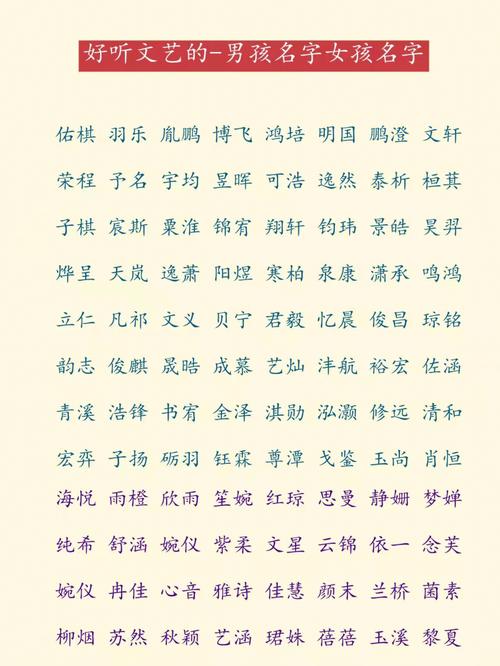 好听文艺的-男孩名字女孩名字
佑棋 羽乐 胤鹏 博飞 鸿培 明国 鹏澄 文轩
荣程 予名 宇均 昱晖 可浩 逸然 泰析 桓萁
子棋 宸斯 粟淮 锦宥 翔轩 钧玮 景皓 昊羿
烨呈 天岚 逸萧 阳煜 寒柏 泉康 潇承 鸣鸿
立仁 凡祁 文义 贝宁 君毅 忆晨 俊昌 琼铭
韵志 俊麒 晟晧 成慕 艺灿 沣航 裕宏 佐涵
青溪 浩锋 书宥 金泽 淇勋 泓灏 修远 清和
宏弈 子扬 砺羽 钰霖 尊潭 戈鉴 玉尚 肖恒
海悦 雨橙 欣雨 笙婉 红琼 思曼 静姗 梦婵
纯希 舒涵 婉仪 紫柔 文星 云锦 依一 念芙
婉仪 冉佳 心音 雅诗 佳慧 颜末 兰桥 菌素
柳烟 苏然 秋颖 艺涵 珺姝 蓓蓓 玉溪 黎夏